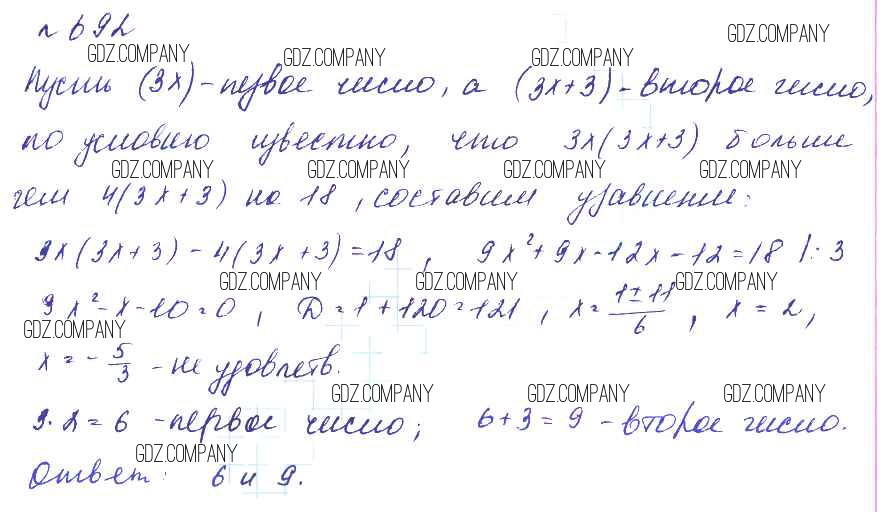 № 692
GDZ.COMPANY GDZ.COMPANY GDZ.COMPANY GDZ.COMPANY
Пусть (3x) - первое число, а (3x+3) - второе число,
по условию известно, что 3x(3x+3) больше
GDZ.COMPANY GDZ.COMPANY GDZ.COMPANY GDZ.COMPANY
чем 4(3x+3) на 18, составим уравнение:
3x(3x+3) - 4(3x+3) = 18, 9x²+9x-12x-12=18 |:3
GDZ.COMPANY GDZ.COMPANY GDZ.COMPANY
3x²-x-10=0, D=1+120=121, x=(1±11)/6, x=2,
GDZ.COMPANY
x=-5/3 - не удовлетв.
GDZ.COMPANY GDZ.COMPANY GDZ.COMPANY
3·2=6 - первое число; 6+3=9 - второе число.
GDZ.COMPANY
Ответ: 6 и 9.